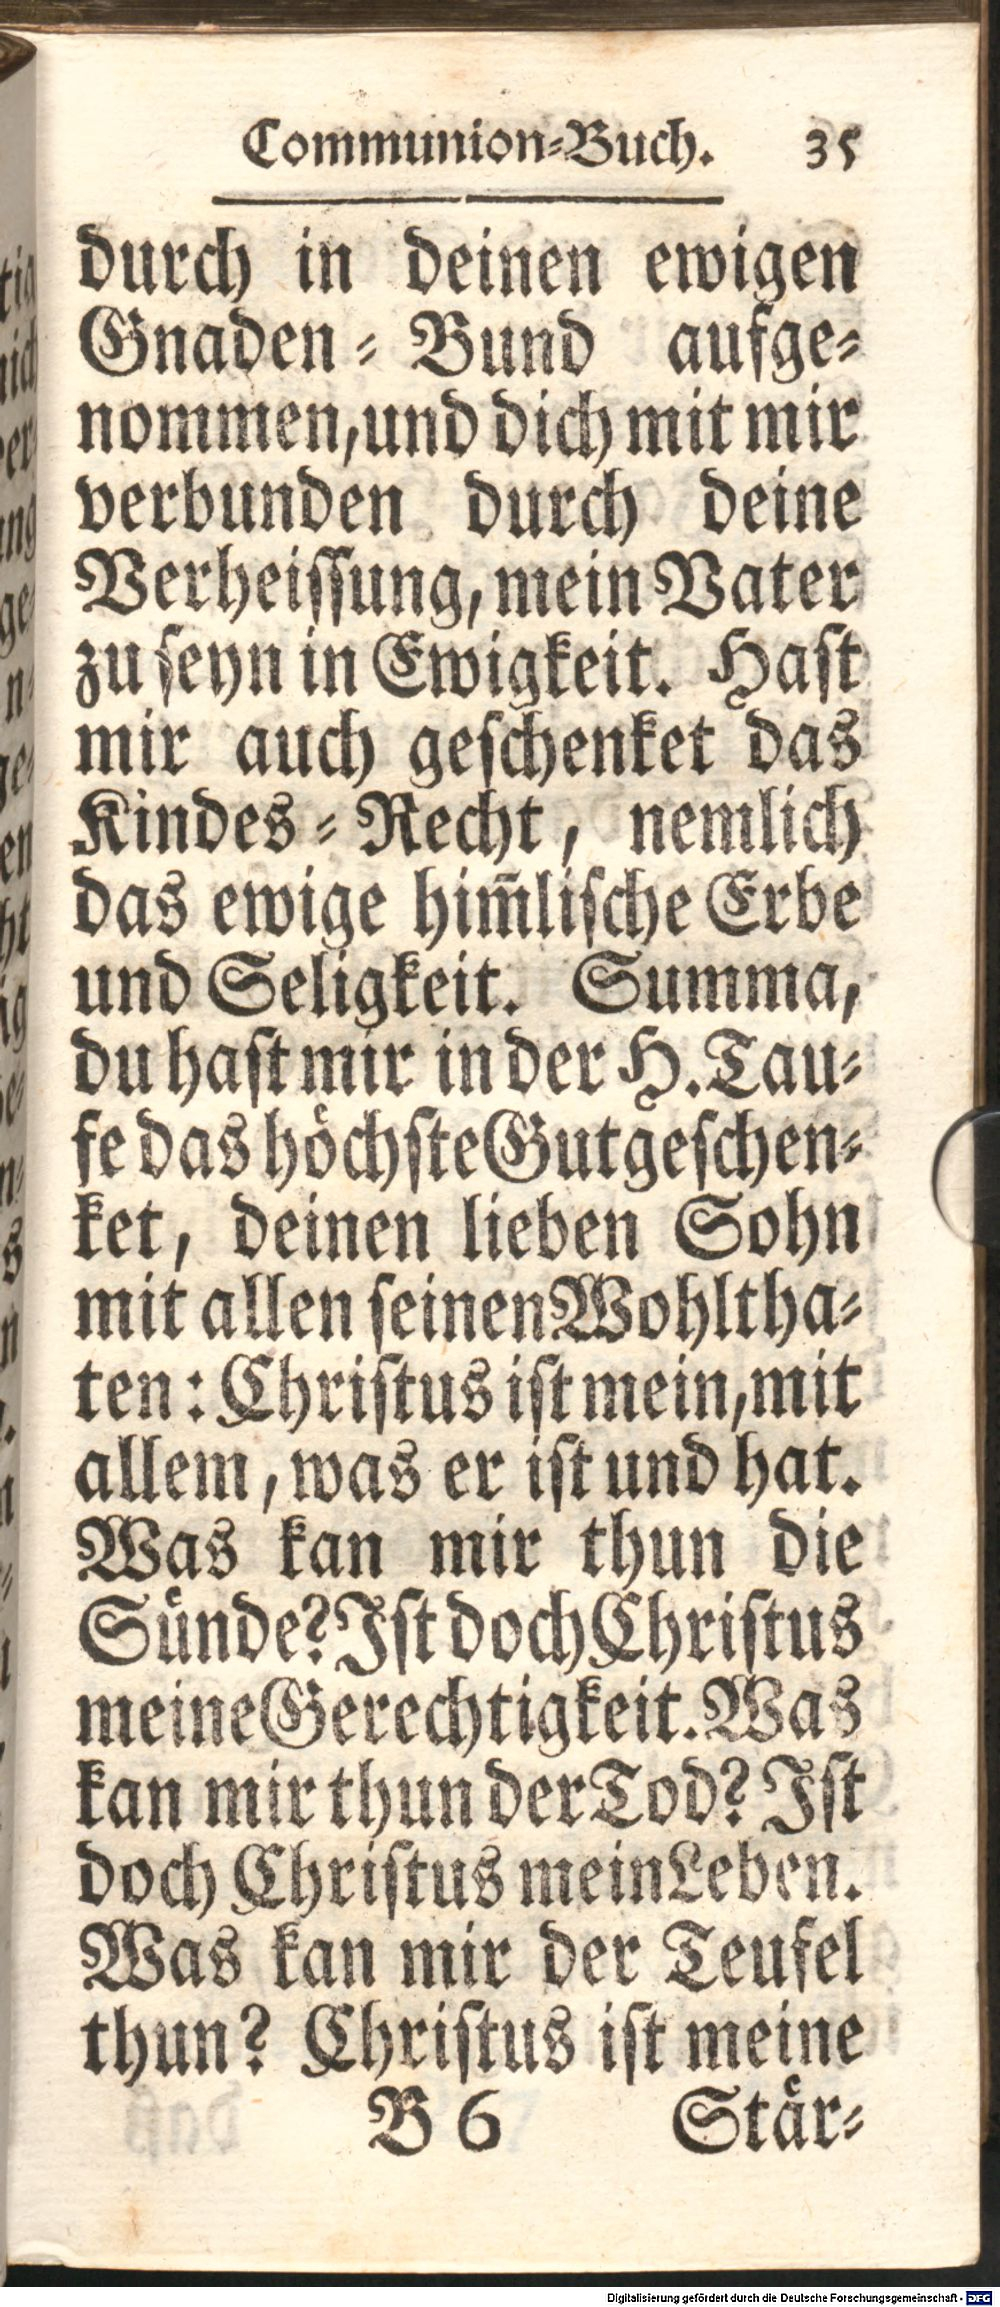 Communion-Buch. 35
durch in deinen ewigen
Gnaden-Bund aufge-
nommen, und dich mit mir
verbunden durch deine
Verheiſſung, mein Vater
zu ſeyn in Ewigkeit. Haſt
mir auch geſchenket das
Kindes-Recht, nemlich
das ewige him̄liſche Erbe
und Seligkeit. Summa,
du haſt mir in der H. Tau-
fe das hoͤchſte Gut geſchen-
ket, deinen lieben Sohn
mit allen ſeinen Wohltha-
ten: Chriſtus iſt mein, mit
allem, was er iſt und hat.
Was kan mir thun die
Suͤnde? Iſt doch Chriſtus
meine Gerechtigkeit. Was
kan mir thun der Tod? Iſt
doch Chriſtus mein Leben.
Was kan mir der Teufel
thun? Chriſtus iſt meine
B 6 Staͤr-
Digitalisierung gefördert durch die Deutsche Forschungsgemeinschaft - DFG